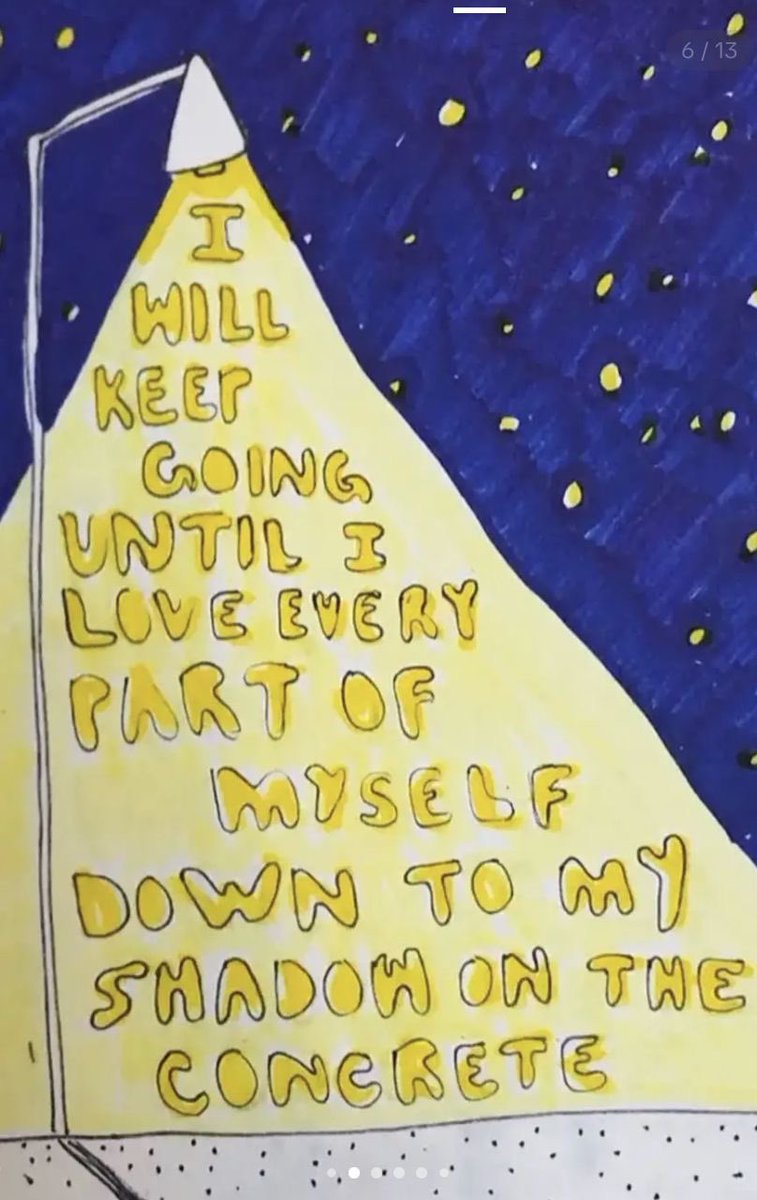 6 / 13
I
WILL
KEEP
GOING
UNTIL I
LOVE EVERY
PART OF
MYSELF
DOWN TO MY
SHADOW ON THE
CONCRETE